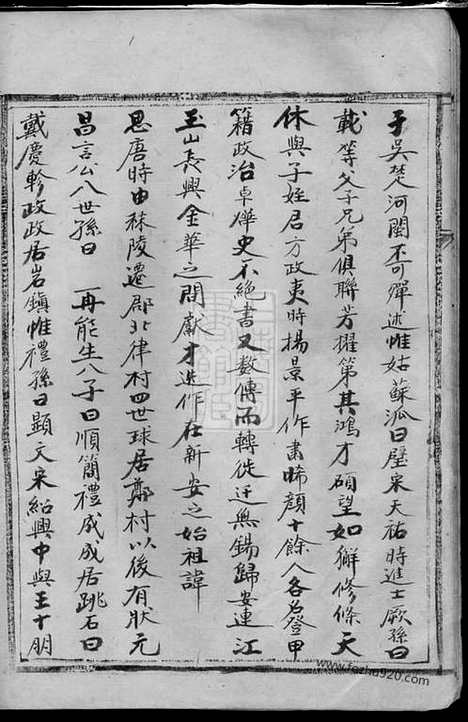 于吳楚河閩不可殫述惟姑蘇派曰壁宋天祐時進士厥孫曰
載等父子兄弟俱聯芳擢第其鴻才碩望如獬修條天
休與子姪君方政夷時揚景平作肅晞顏十餘人各登甲
籍政治卓燁史不絕書又数傳而轉徙迁無錫歸安連江
玉山長興金華之間獻才迭作在新安之始祖諱
思唐時由秣陵遷郡北律村四世球居鄣村以後有狀元
昌言公八世孫曰 再能生八子曰順簡禮成成居跳石曰
戴慶軫政政居岩鎮惟禮孫曰顕文宋紹興中與王十朋
www.fozhu920.com